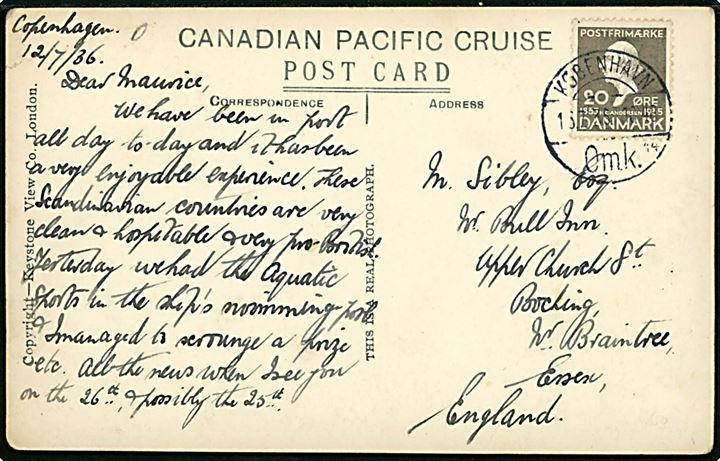 Copenhagen.
12/7/36.
CANADIAN PACIFIC CRUISE
POST CARD
CORRESPONDENCE
ADDRESS
Dear Maurice,
We have been in port
all day to-day and it has been
a very enjoyable experience. These
Scandinavian countries are very
clean & hospitable & very pro-British.
Yesterday we had the Aquatic
Sports in the ship's swimming pool
& I managed to scrounge a prize
etc. All the news when I see you
on the 26th, & possibly the 25th.
Copyright—Keystone View Co., London.
THIS IS A REAL PHOTOGRAPH.
POSTFRIMÆRKE
20 ØRE
1835 H.C. ANDERSEN 1935
DANMARK
KØBENHAVN
Omk.
M. Sibley, Esq
Nr. Bull Inn.
Upper Church St.
Bocking,
Nr. Braintree,
Essex,
England.